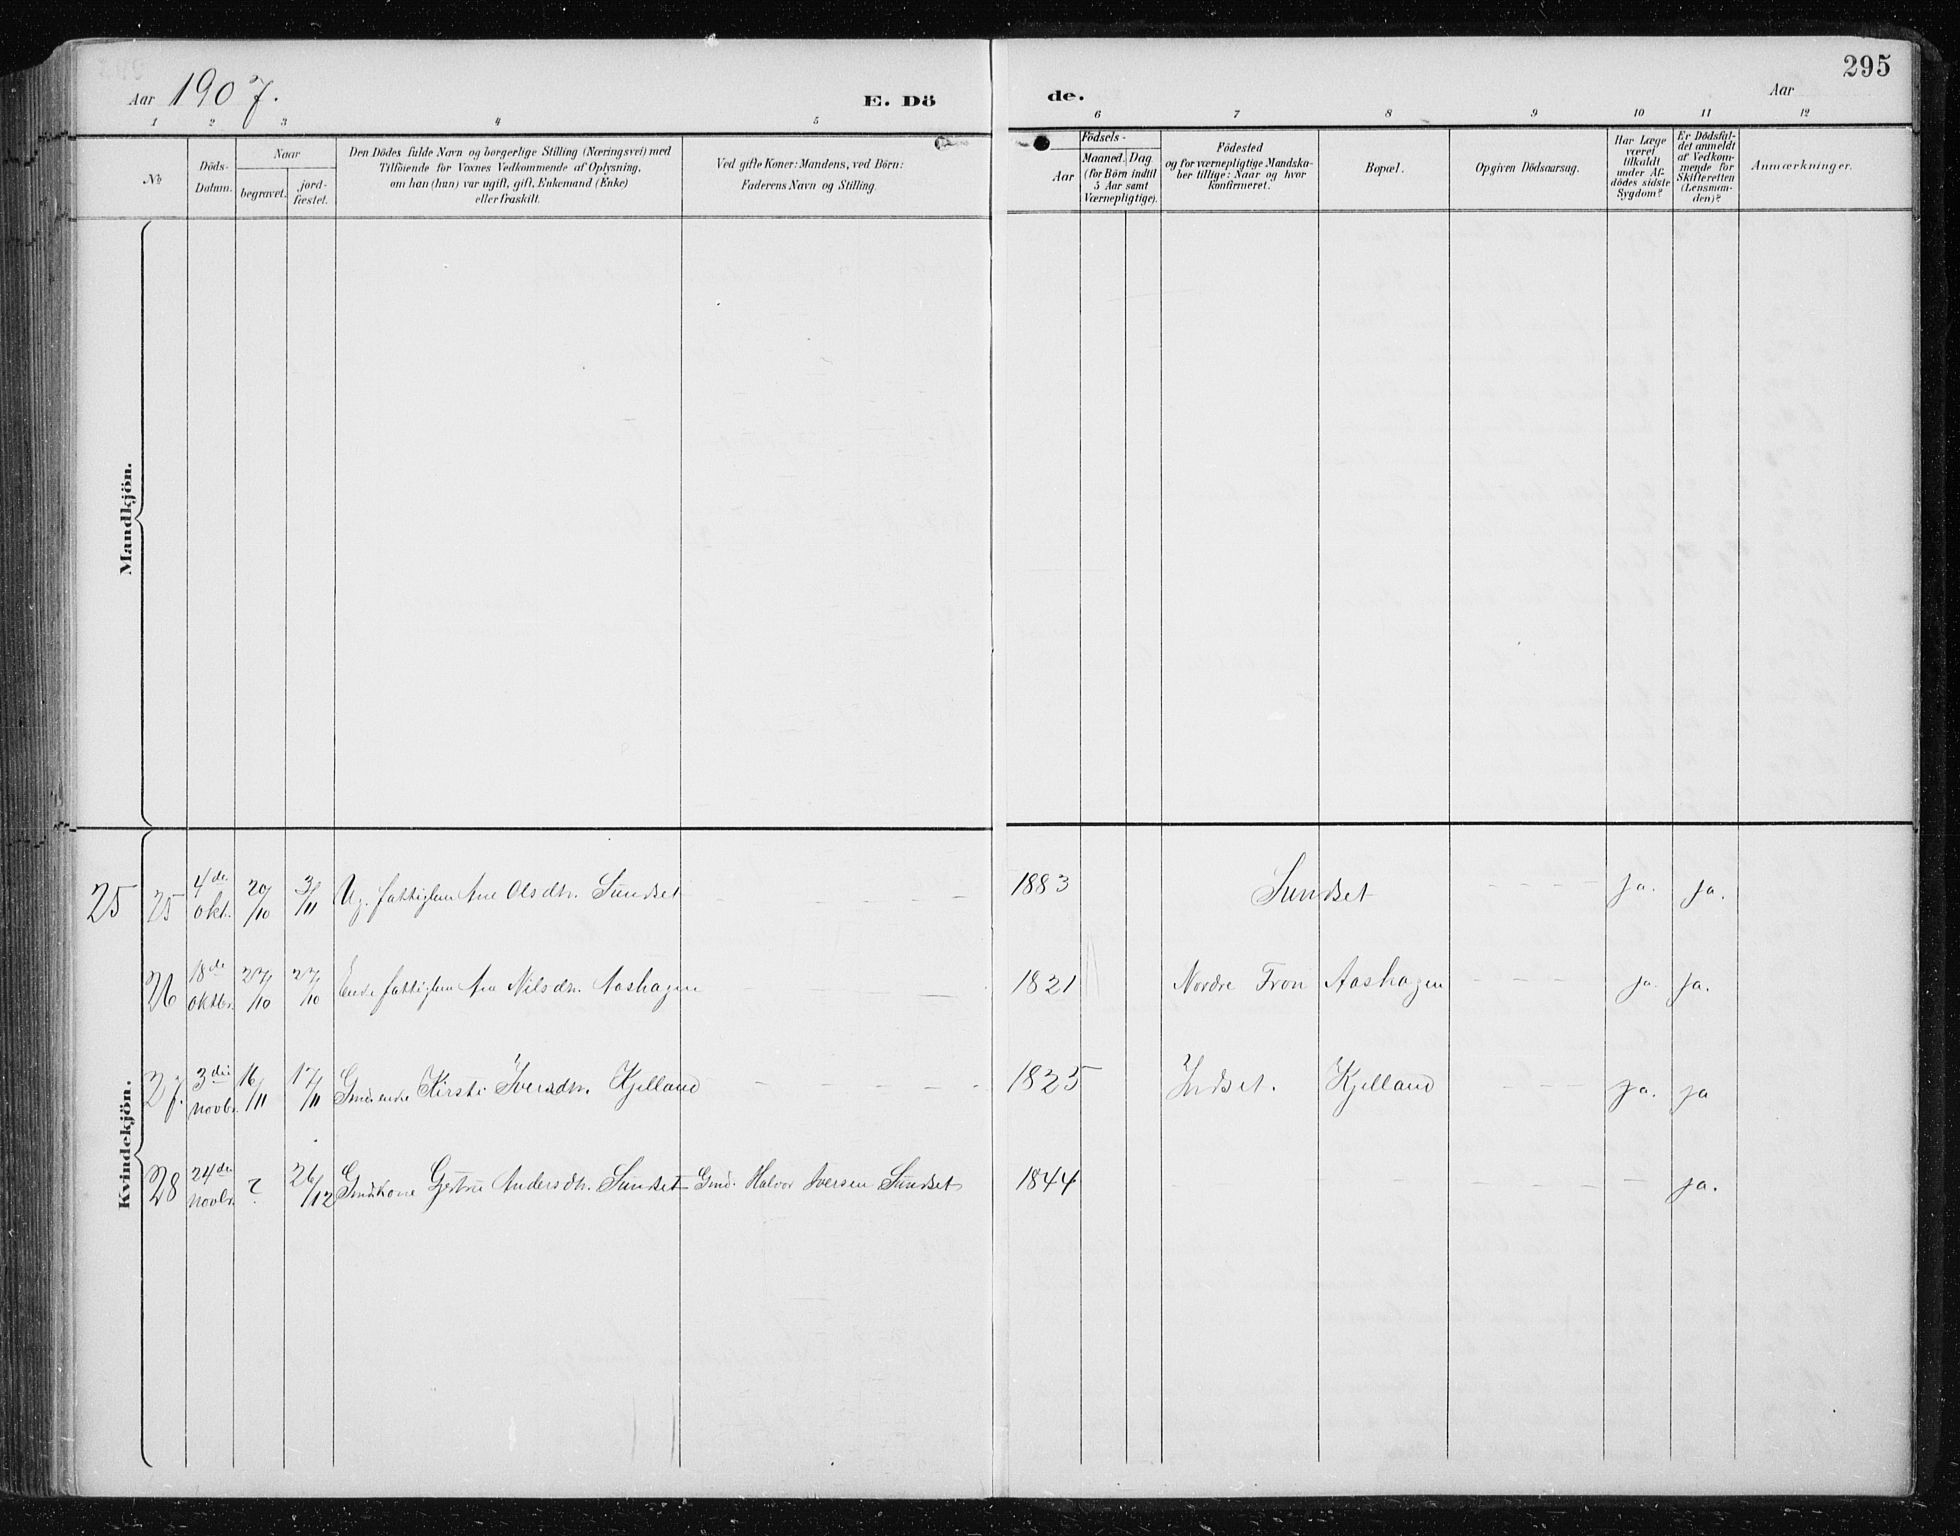 295
Aar 1907.
E. Dö
de.
Aar
1 2 3 4 5 6 7 8 9 10 11 12
№
Döds-
Datum.
Naar
begravet.
jord-
fæstet.
Den Dödes fulde Navn og borgerlige Stilling (Næringsvei) med
Tilföiende for Voxnes Vedkommende af Oplysning,
om han (hun) var ugift, gift, Enkemand (Enke)
eller fraskilt.
Ved gifte Koner: Mandens, ved Börn:
Faderens Navn og Stilling.
Födsels-
Aar
Maaned. Dag
(for Börn indtil
5 Aar samt
Værnepligtige).
Födested
og for værnepligtige Mandska-
ber tillige: Naar og hvor
konfirmeret.
Bopæl.
Opgiven Dödsaarsag.
Har Læge
været
tilkaldt
under Af-
dödes sidste
Sygdom?
Er Dödsfal-
det anmeldt
af Vedkom-
mende for
Skifteretten
(Lensman-
den)?
Anmærkninger.
Mandkjön.
Kvindekjön.
25 25 4de okt. 20/10 3/11 Ug. fattiglem Ane Olsdtr. Sundset - - - 1883 Sundset - - - - ja. ja.
26 18de oktbr. 27/10 27/10 Enke fattiglem Ane Nilsdtr. Aashagen - - - 1821 Nordre Fron Aashagen - - - - ja. ja.
27. 3die novbr. 16/11 17/11 Kirsti Iversdtr. Kjelland - - - 1825 Indset. Kjelland - - - ja. ja
28 24de novbr. ? 26/12 Gmdkone Gjertru Andersdtr. Sundset Gmd. Halvor Iversen Sundset 1844 - - - - - - ja.